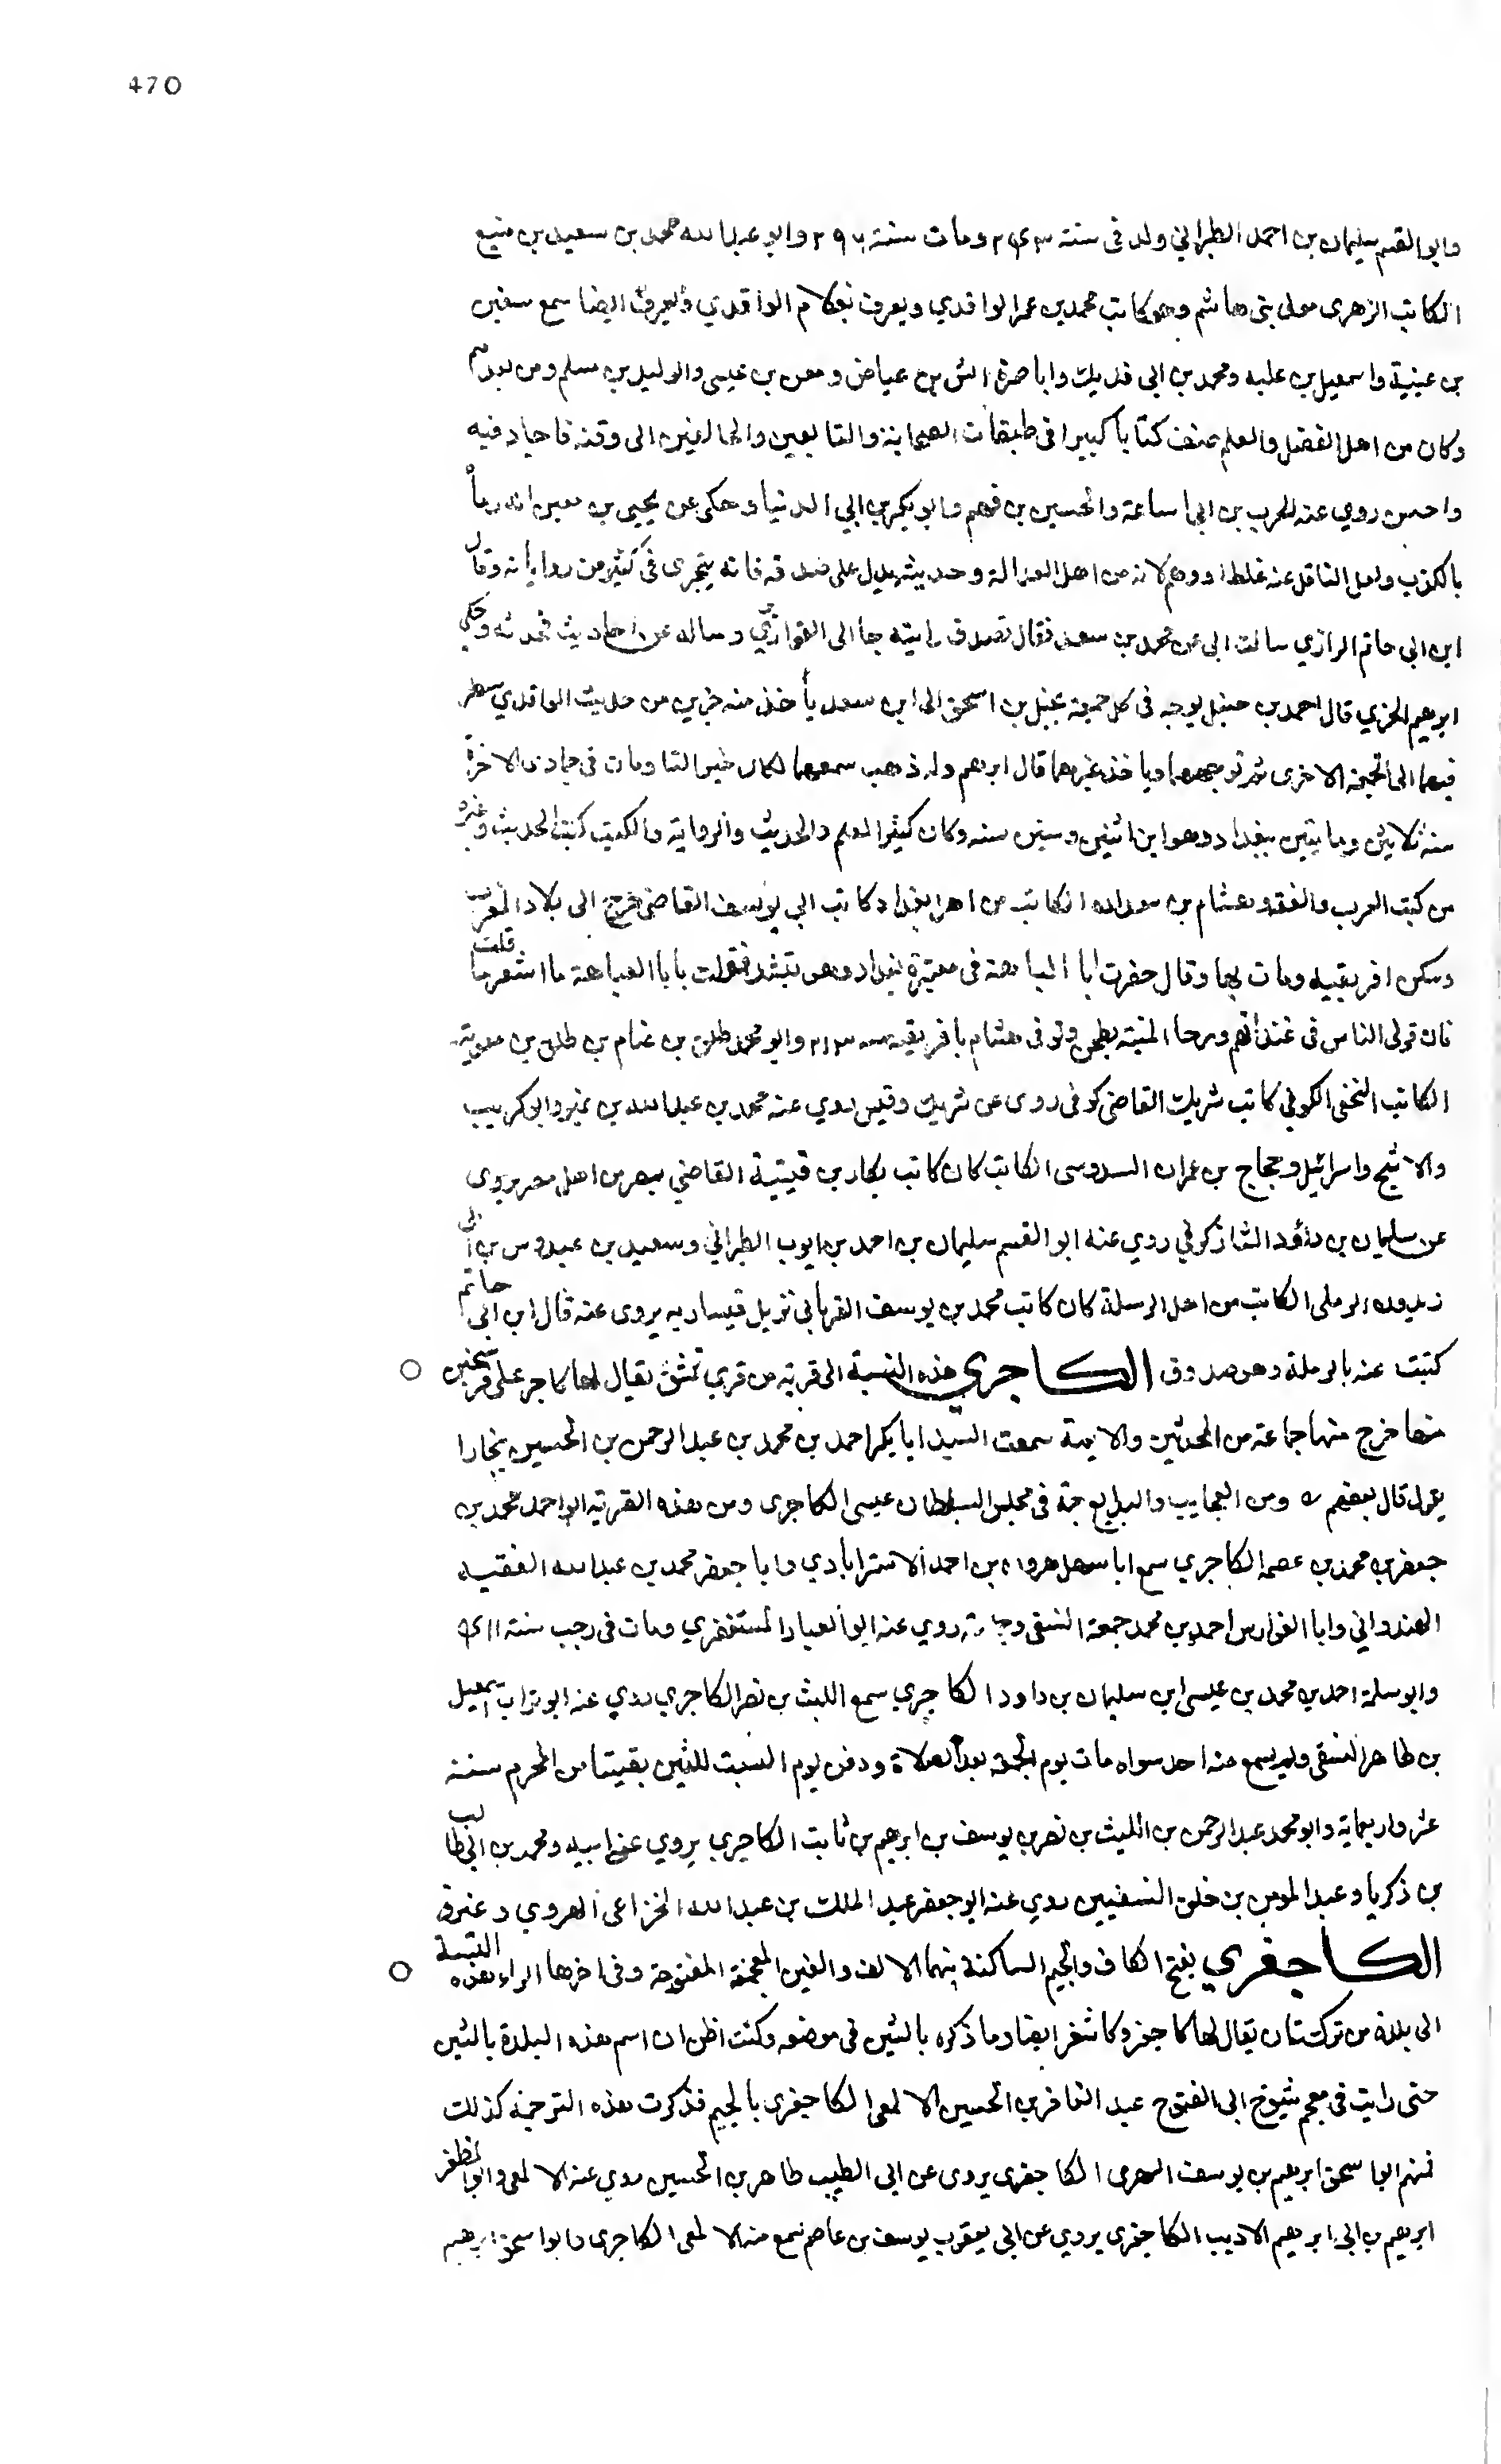 470
وابو القسم سليمان بن احمد الطبراني ولد في سنة ومات سنة وابو عبد الله محمد بن سعيد بن منيع
الكاتب الزهرى مولى بنى هاشم وهو كاتب محمد بن عمر الواقدي ويعرف بغلام الواقدي ويعرف ايضا سمع سفين
بن عيينة واسمعيل بن علية ومحمد بن ابى فديك واباضمرة انس بن عياض ومعن بن عيسى والوليد بن مسلم ومن بعدهم
وكان من اهل الفضل والعلم صنف كتابا كبيرا فى طبقات الصحابة والتابعين والخالفين الى وقته فاجاد فيه
واحسن روي عنه الحرث بن ابى اساعة والحسين بن فهم وابو بكر بن ابي الدنيا وحكى عن يحيى بن معين انه رماه
بالكذب ولعل الناقل عنه غلط او وهم لانه من اهل العدالة وحديثه يدل على صدقه فانه يتحرى فى كثير من رواياته وقال
ابن ابى حاتم الرازي سالت ابى عن محمد بن سعد فقال تصدق رايته جا الى القواريري وساله عن احاديث فحدثه وحكى
ابرهيم الحربي قال احمد بن حنبل يوجه فى كل جمعة بحنبل بن اسحق الى ابن سعد يأخذ منه جزين من حديث الواقدي ينظر
فيهما الى الجمعة الاخرى ثم يوجههما وياخذ غيرهما قال ابرهيم ولو ذهب سمعهما لكان خيرا لقا ومات فى جمادى الاخرة
سنة ثلاثين وماتين ببغداد وهو ابن اثنين وستين سنه وكان كثير العلم والحديث والرواية والكتب كتب الحديث وغيره
من كتب الغريب والفقه وهشام بن الكاتب من اهل بغداد كاتب ابي يوسف القاضى خرج الى بلاد المغرب
وسكن افريقيه ومات بها وقال حضرت ابا العتاهية فى مقبرة بغداد وهو ينشد فقلت ياباا لعباهة ما اشعر ما قلت
قال قولى الناس فى غفلاتهم ورحا المنية تطحن وتوفى هشام بافريقيه سنه وابو محمد طلق بن غنام بن طلق بن معوية
الكاتب النخعى الكوفي كاتب شريك القاضى كوفى روى عن شريك وقيس روي عنه محمد بن عبد الله بن نمير وابو كريب
والاشج واسرائيل وحجاج بن عمران السدوسى الكاتب كان كاتب بكار بن قتيبة القاضي بمصر من اهل مصر يروى
عن سليمان بن داود الشاذكوني روي عنه ابو القسم سليمان بن احمد بن ايوب الطبراني وسعيد بن عبدوس بن ابى
زيدون الرملى الكاتب من اهل الرملة كان كاتب محمد بن يوسف الفريابي نزيل قيساريه يروى عنه قال ابن ابى حاتم
كتبت عنه بالرملة وهو صدوق الكاجري هذه النسبة الى قرية من قرى يقال لها كاجر على فرسخين
منها خرج منها جماعة من المحدثين والايمة سمعت السيد ابا بكر احمد بن محمد بن عبد الرحمن بن الحسين ببخارا
يقول قال بعضهم ومن العجايب والبدايع جمة فى مجلس السلطان عيسى الكاجرى ومن هذه القرية ابو احمد محمد بن
جعفر بن محمد بن عصمة الكاجري سمع ابا سهل هرون بن احمد الاسترابادي وابا جعفر محمد بن عبد الله الفقيه
الهندواني وابا الفوارس احمد بن محمد جمعة النسفى وجماعة روي عنه ابو العباس المستغفري ومات فى رجب سنة
وابو سلمة احمد بن محمد بن عيسى ابن سليمان بن داود الكاجري سمع الليث بن نصر الكاجري روي عنه ابو تراب اسمعيل
بن طاهر النسفى ولم يسمع منه احد سواه مات يوم الجمعة بعد الصلاة ودفن يوم السبت لليلتين بقيتا من المحرم سنة
عشر واربعماية وابو محمد عبد الرحمن بن الليث بن نصر بن يوسف بن ابرهيم بن ثابت الكاجري يروي عن ابيه ومحمد بن ابى طالب
بن زكريا وعبد المومن بن خلف النسفيين روي عنه ابو جعفر عبد الملك بن عبد الله الخزاعى الهروي وغيره
الكاجغري بفتح الكاف والجيم الساكنة بينهما الالف والغين المعجمة المفتوحة وفى اخرها الراء هذه النسبة
الى بلدة من تركستان يقال لها كاجغر وكاشغر ايضا وما ذكره بالشين فى موضعه وكنت اظن ان اسم هذه البلدة بالشين
حتى رايت فى معجم شيوخ ابى الفتوح عبد الغافر بن الحسين الالمعى الكاجغرى بالجيم فذكرت هذه الترجمة كذلك
فمنهم ابو اسحق ابرهيم بن يوسف الكاجغرى يروى عن ابى الطيب طاهر بن الحسين روي عنه الالمعى وابو المظفر
ابرهيم بن ابى ابرهيم الاديب الكاجغرى يروي عن ابى يعقوب يوسف بن عاصم سمع منه الالمعى الكاجرى وابو اسحق ابرهيم